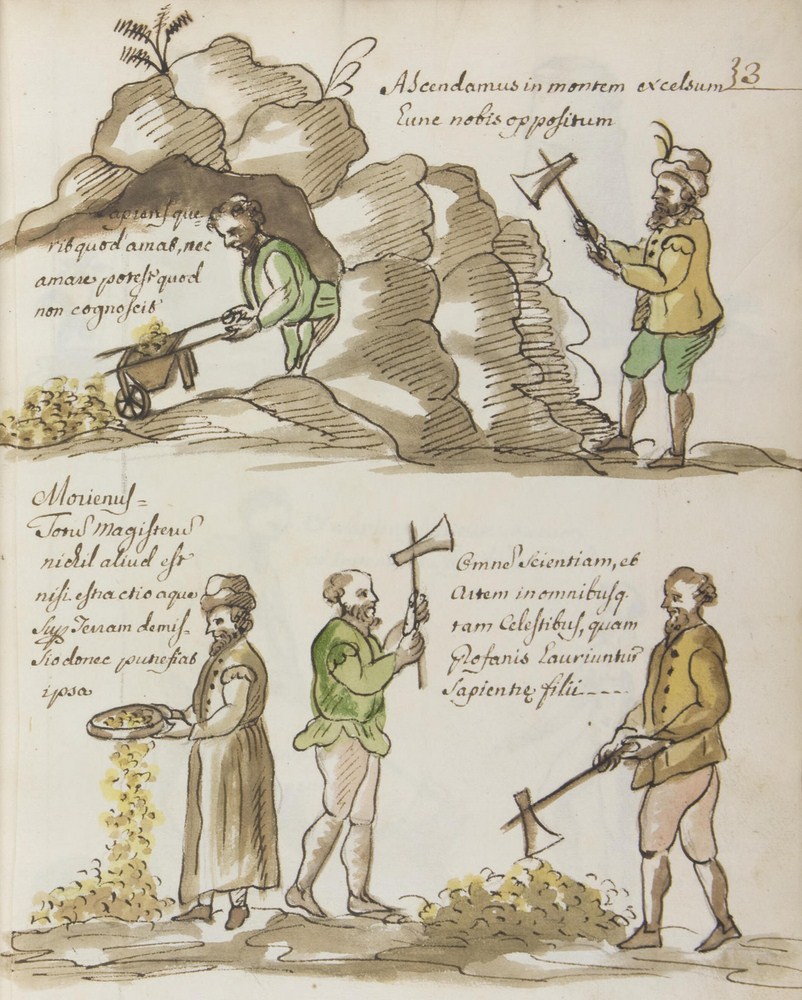 33
Ascendamus in montem excelsum
Eunc nobis oppositum
Sapiens que
ris quod amas, nec
amare potest quod
non cognoscis
Morienus =
Totus Magisterus
nichil aliud est
nisi estractio aque
Sup Terram demis-
sio donec putrefias
ipsa
Omnes scientiam, et
Artem in omnibusq.
tam Celestibus, quam
Profanis Lauriuntur
Sapientię filii ----